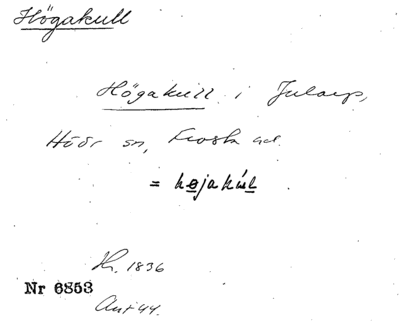 Högakull
Högakull i Jularp,
Höör sn, Frosta hd.
= højakúl
Kr. 1836
Nr 6853
Ant 44.